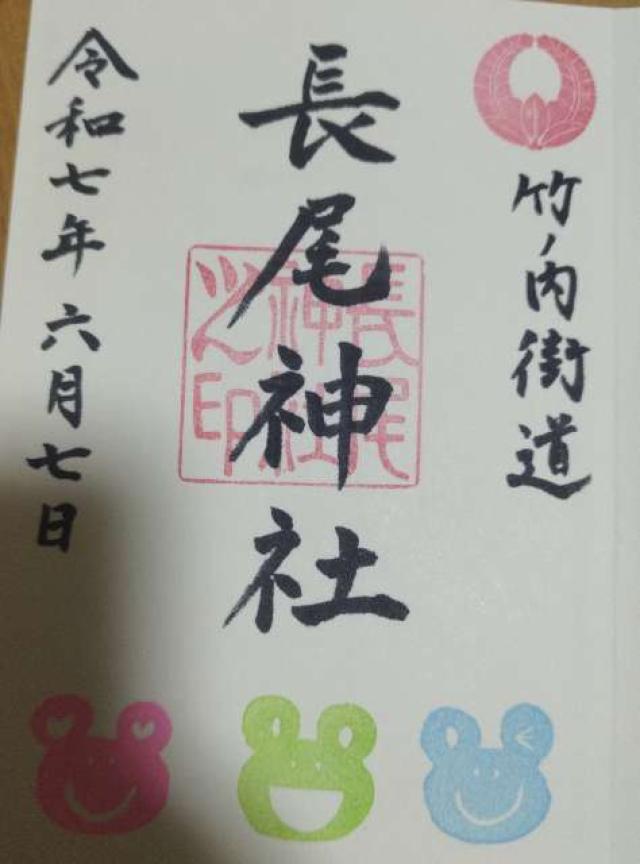 竹ノ内街道
長尾神社
長尾神社之印
令和七年六月七日